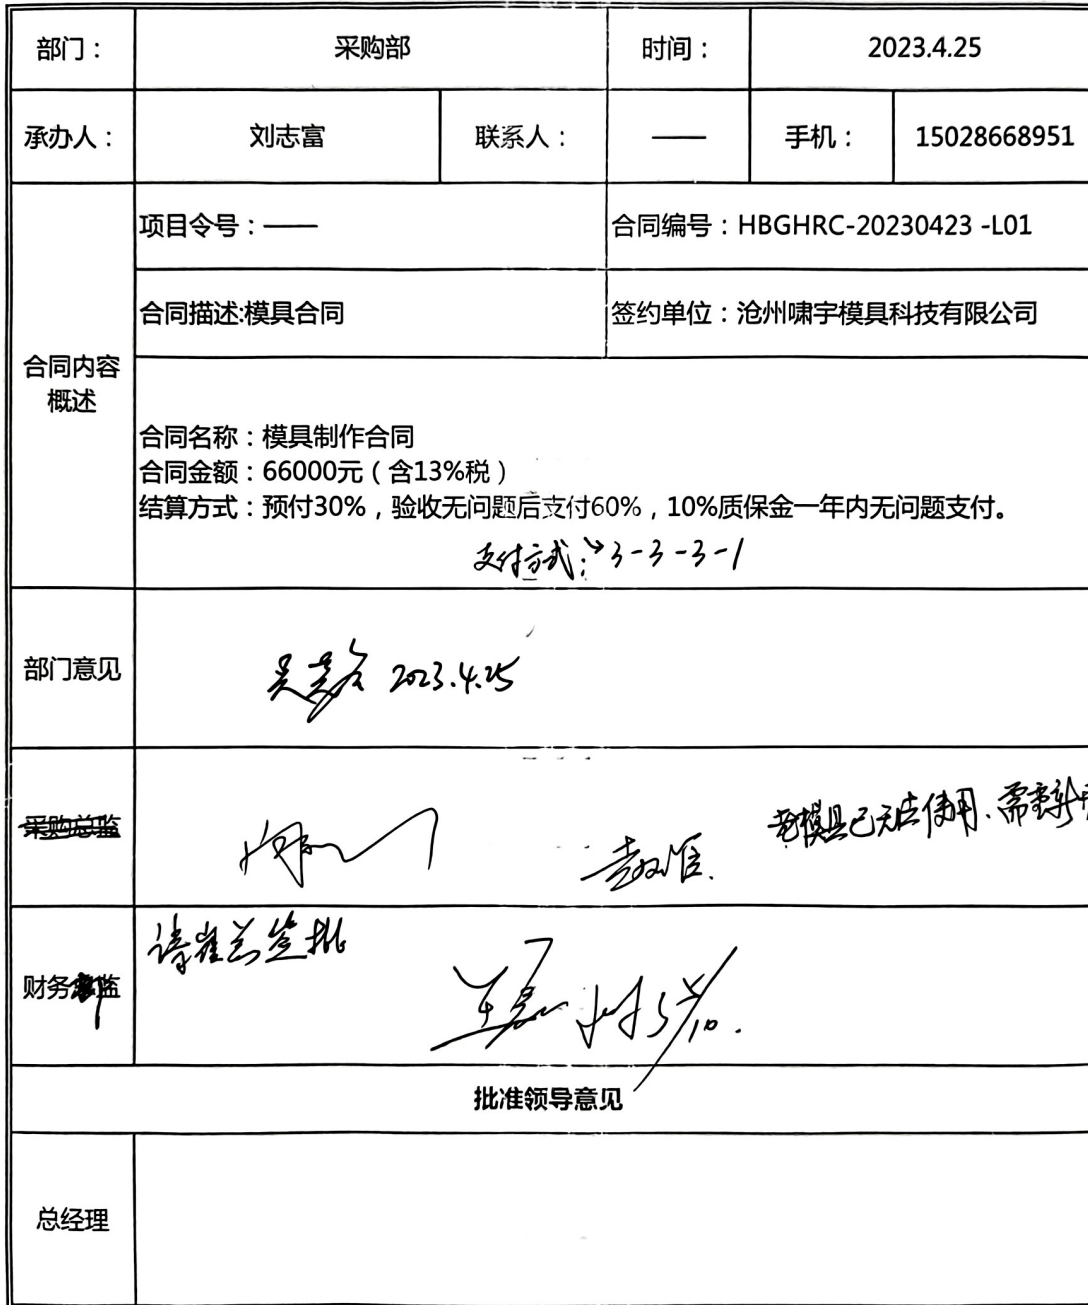 部门： 采购部 时间： 2023.4.25
承办人： 刘志富 联系人： —— 手机： 15028668951
合同内容概述
项目令号：—— 合同编号：HBGHRC-20230423 -L01
合同描述:模具合同 签约单位：沧州啸宇模具科技有限公司
合同名称：模具制作合同
合同金额：66000元（含13%税）
结算方式：预付30%，验收无问题后支付60%，10%质保金一年内无问题支付。
支付方式：3-3-3-1
部门意见 2023.4.25
采购总监
老模具已无法使用、需重新
财务 监 请崔总签批
5/10.
批准领导意见
总经理